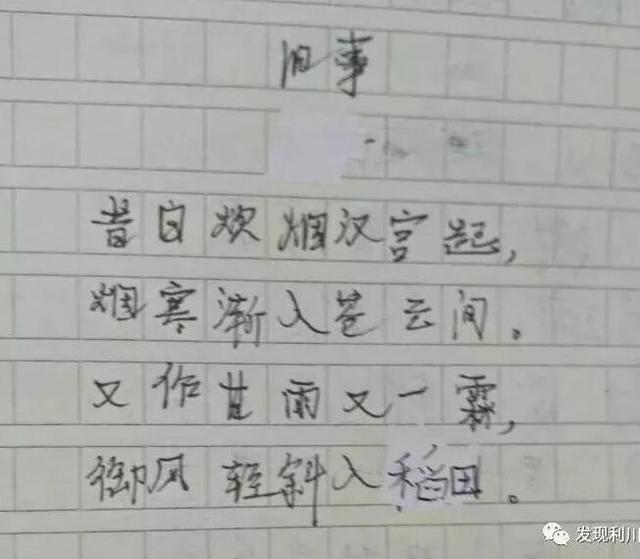 旧事
昔日炊烟汉宫起，
烟寒渐入苍云间。
又作甘雨又一霖，
御风轻斜入稻田。
发现利川